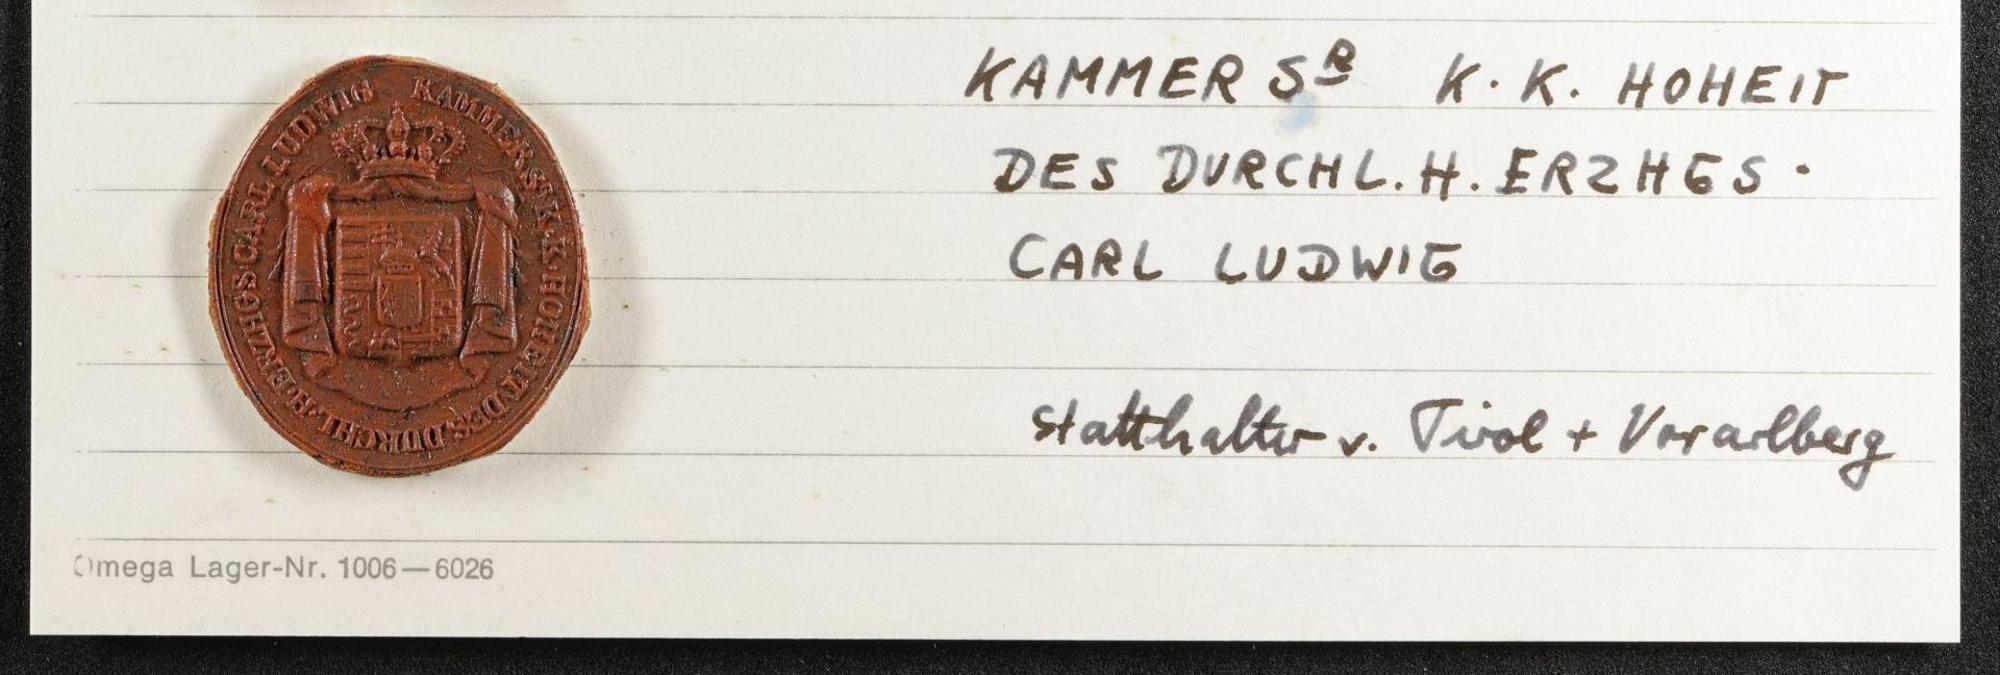 KAMMER S^R K. K. HOHEIT DES DURCHL. H. ERZHGS CARL LUDWIG
KAMMER SR K. K. HOHEIT
DES DURCHL. H. ERZHGS.
CARL LUDWIG
Statthalter v. Tirol + Vorarlberg
Omega Lager-Nr. 1006—6026